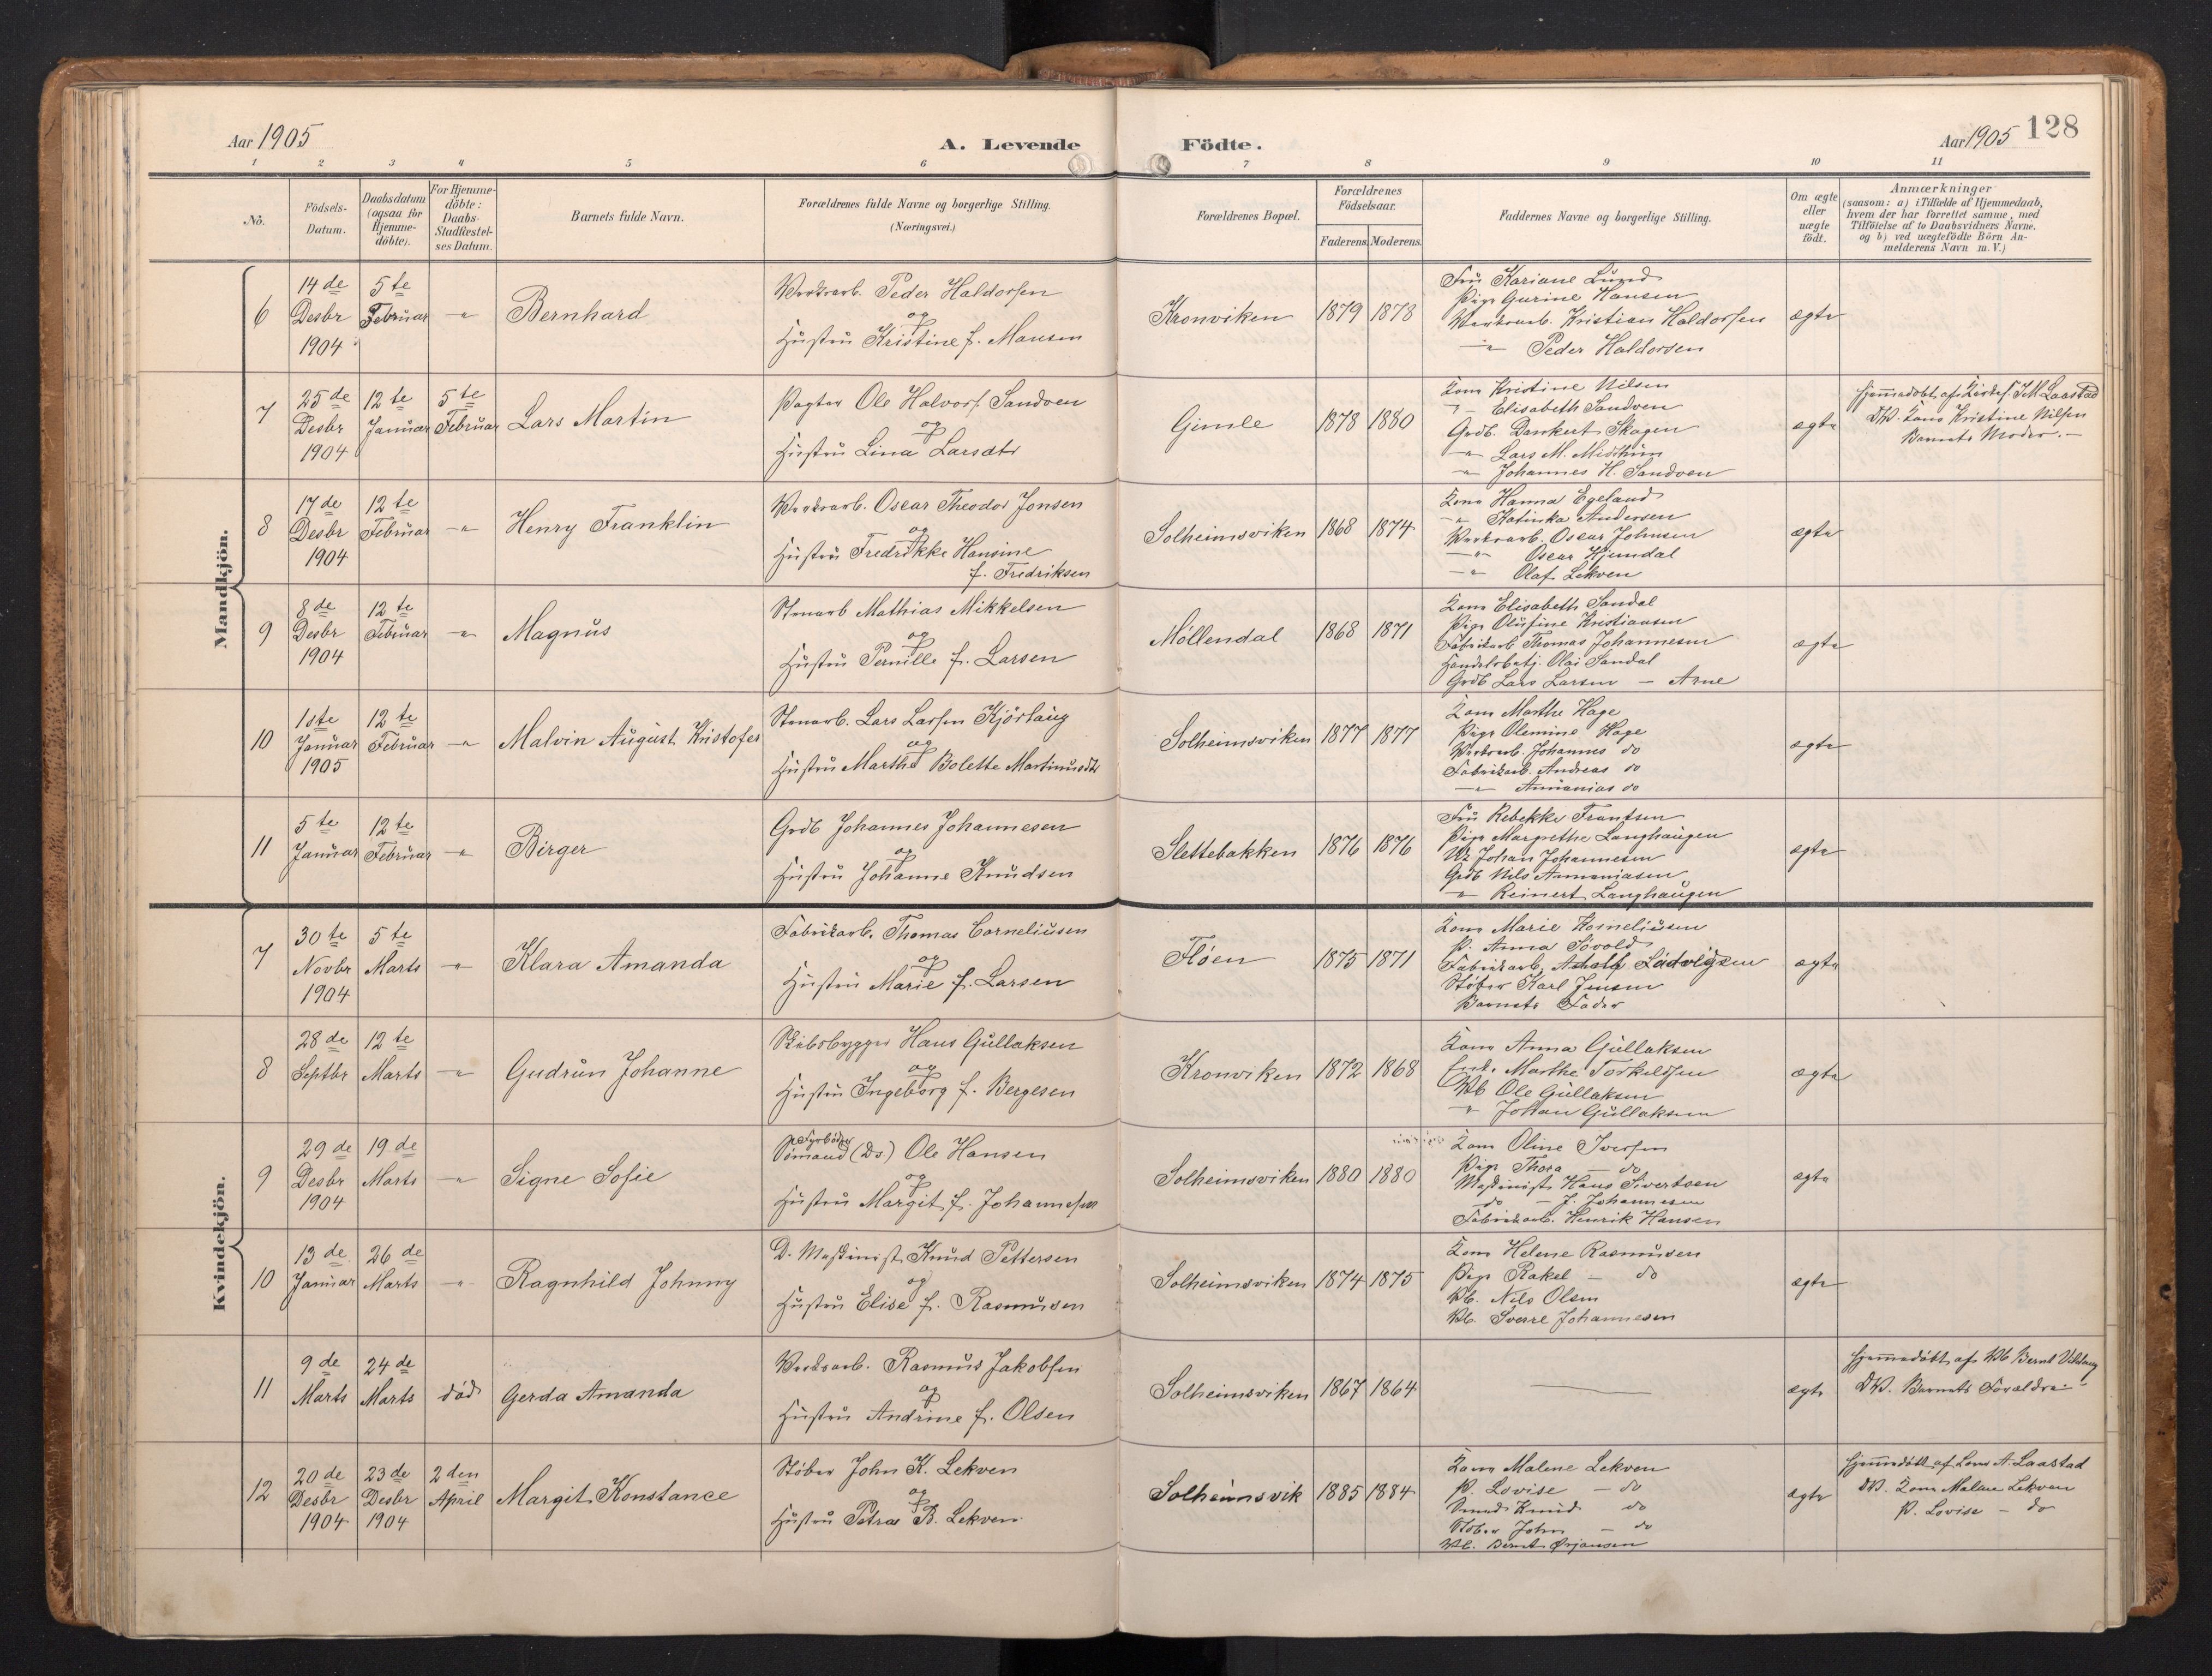 Aar 1905
A. Levende Födte.
Aar 1905 128
1 2 3 4 5 6 7 8 9 10 11
No.
Födsels-
Datum.
Daabsdatum
(ogsaa for
Hjemme-
döbte).
For Hjemme-
döbte:
Daabs-
Stadfæstel-
ses Datum.
Barnets fulde Navn.
Forældrenes fulde Navne og borgerlige Stilling.
(Næringsvei.)
Forældrenes Bopæl.
Forældrenes
Födselsaar.
Faderens. Moderens.
Faddernes Navne og borgerlige Stilling.
Om ægte
eller
uægte
födt.
Anmærkninger
(saasom: a) i Tilfælde af Hjemmedaab,
hvem der har forrettet samme, med
Tilföielse af to Daabsvidners Navne,
og b) ved uægtefödte Börn An-
melderens Navn m. V.)
Mandkjön.
6
14 de
Desbr
1904
5 te
Februar
"
Bernhard
Verksarb. Peder Haldorsen
og
Hustru Kristine f. Monsen
Kronviken
1879 1878
Fru Kariane Lund
Pige Gurine Hansen
Verksarb. Kristian Haldorsen
" Peder Haldorsen
ægte
7
25 de
Desbr
1904
12 te
Januar
5 te
Februar
Lars Martin
Pagter Ole Halvors. Sandven
og
Hustru Lina Larsdtr
Gimle
1878 1880
Kone Kristine Nilsen
" Elisabeth Sandven
Grdb. Dankert Skagen
" Lars M.
" Johannes H. Sandven
ægte
Hjemmedöbt af J. M. Laastad
DV. Kone Kristine Nilsen
Barnets Moder.
8
17 de
Desbr
1904
12 te
Februar
"
Henry Franklin
Verksarb. Oscar Theodor Jonsen
og
Hustru Fredrikke Hansine
f. Fredriksen
Solheimsviken
1868 1874
Kone Hanna Egeland
" Katinka Andersen
Verksarb. Oscar Johnsen
" Oscar Hjemdal
" Olaf Lekven
ægte
9
8 de
Desbr
1904
12 te
Februar
"
Magnus
Stenarb Mathias Mikkelsen
og
Hustru Pernille f. Larsen
Möllendal
1868 1871
Kone Elisabeth Sandal
Pige Olufine Kristiansen
Fabrikarb Thomas Johannesen
Handelsbetj. Olai Sandal
Grdb Lars Larsen – Arne
ægte
10
1ste
Januar
1905
12 te
Februar
"
Malvin August Kristofer
Stenarb. Lars Larsen Kjörlaug
og
Hustru Marthe Bolette Martinusdtr
Solheimsviken
1877 1877
Kone Marthe Hage
Pige Olemine Hage
Verksarb. Johannes do
Fabrikarb. Andreas do
" Annanias do
ægte
11
5 te
Januar
12 te
Februar
"
Birger
Grdb Johannes Johannesen
og
Hustru Johanne Knudsen
Slettebakken
1876 1876
Fru Rebekke Frantsen
Pige Margrethe Langhaugen
Johan Johannesen
Grdb Nils Annaniasen
" Reinert Langhaugen
ægte
Kvindekjön.
7
30 te
Novbr
1904
5 te
Marts
"
Klara Amanda
Fabrikarb. Thomas Corneliusen
og
Hustru Marie f. Larsen
Flöen
1875 1871
Kone Marie Korneliusen
P. Anna Sövold
Fabrikarb. Adolf Ludvigsen
Stöber Karl Jensen
Barnets Fader
ægte
8
28 de
Septbr
12 te
Marts
"
Gudrun Johanne
Skibsbygger Hans Gullaksen
og
Hustru Ingeborg f. Bergesen
Kronviken
1872 1868
Kone Anna Gullaksen
Enke Marthe Torkeldsen
Vb Ole Gullaksen
" Johan Gullaksen
ægte
9
29 de
Desbr
1904
19 de
Marts
"
Signe Sofie
Fyrböder
Sömand (Ds.) Ole Hansen
og
Hustru Margit f. Johannesen
Solheimsviken
1880 1880
Kone Oline Iversen
Pige Thora – do
Maskinist Hans Sivertsen
do – J. Johannesen
Fabrikarb. Henrik Hansen
ægte
10
13 de
Januar
26 de
Marts
"
Ragnhild Johnny
D. Maskinist Knud Pettersen
og
Hustru Elise f. Rasmusen
Solheimsviken
1874 1875
Kone Helene Rasmusen
Pige Rakel – do
Vb. Nils Olsen
Vb. Sverre Johannesen
ægte
11
9 de
Marts
24 de
Marts
död
Gerda Amanda
Verksarb. Rasmus Jakobsen
og
Hustru Andrine f. Olsen
Solheimsviken
1867 1864
ægte
Hjemmedöbt af Vb Bernt
DV. Barnets Forældre
12
20 de
Desbr
1904
23 de
Desbr
1904
2 den
April
Margit Konstance
Stöber John K. Lekven
og
Hustru Petra B. Lekven
Solheimsvik
1885 1884
Kone Malene Lekven
P. Lovise – do
Smed Knud do
Stöber John – do
Vb. Bernt Örjansen
ægte
Hjemmedöbt af A. Laastad
DV. Kone Malene Lekven
P. Lovise – do